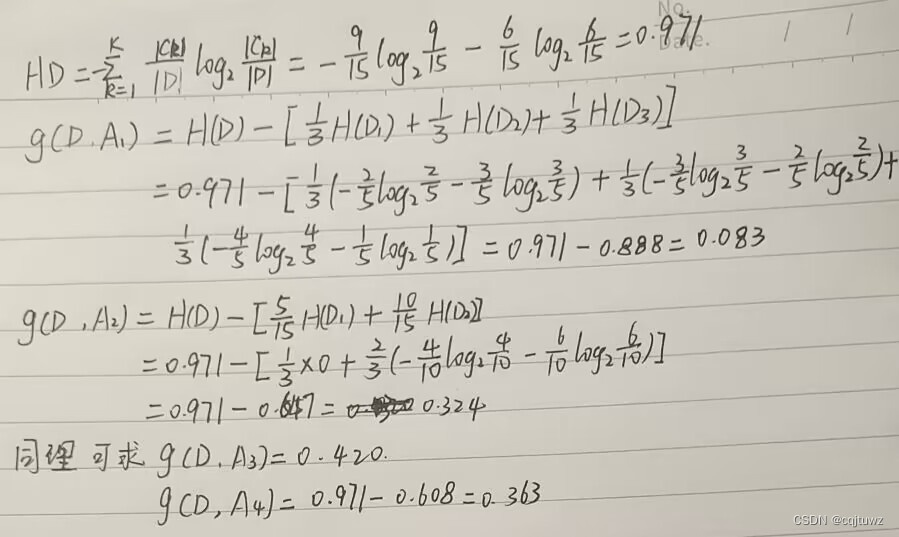 No.
Date.
HD = -∑_{k=1}^{K} |Ck|/|D| log₂ |Ck|/|D| = - 9/15 log₂ 9/15 - 6/15 log₂ 6/15 = 0.971
g(D.A₁) = H(D) - [1/3 H(D₁) + 1/3 H(D₂) + 1/3 H(D₃)]
= 0.971 - [1/3(-2/5 log₂ 2/5 - 3/5 log₂ 3/5) + 1/3(-3/5 log₂ 3/5 - 2/5 log₂ 2/5) +
1/3(-4/5 log₂ 4/5 - 1/5 log₂ 1/5)] = 0.971 - 0.888 = 0.083
g(D,A₂) = H(D) - [5/15 H(D₁) + 10/15 H(D₂)]
= 0.971 - [1/3×0 + 2/3(-4/10 log₂ 4/10 - 6/10 log₂ 6/10)]
= 0.971 - 0.647 = 0.324
同理 可求 g(D.A₃) = 0.420.
g(D,A₄) = 0.971 - 0.608 = 0.363
CSDN @cqjtuwz